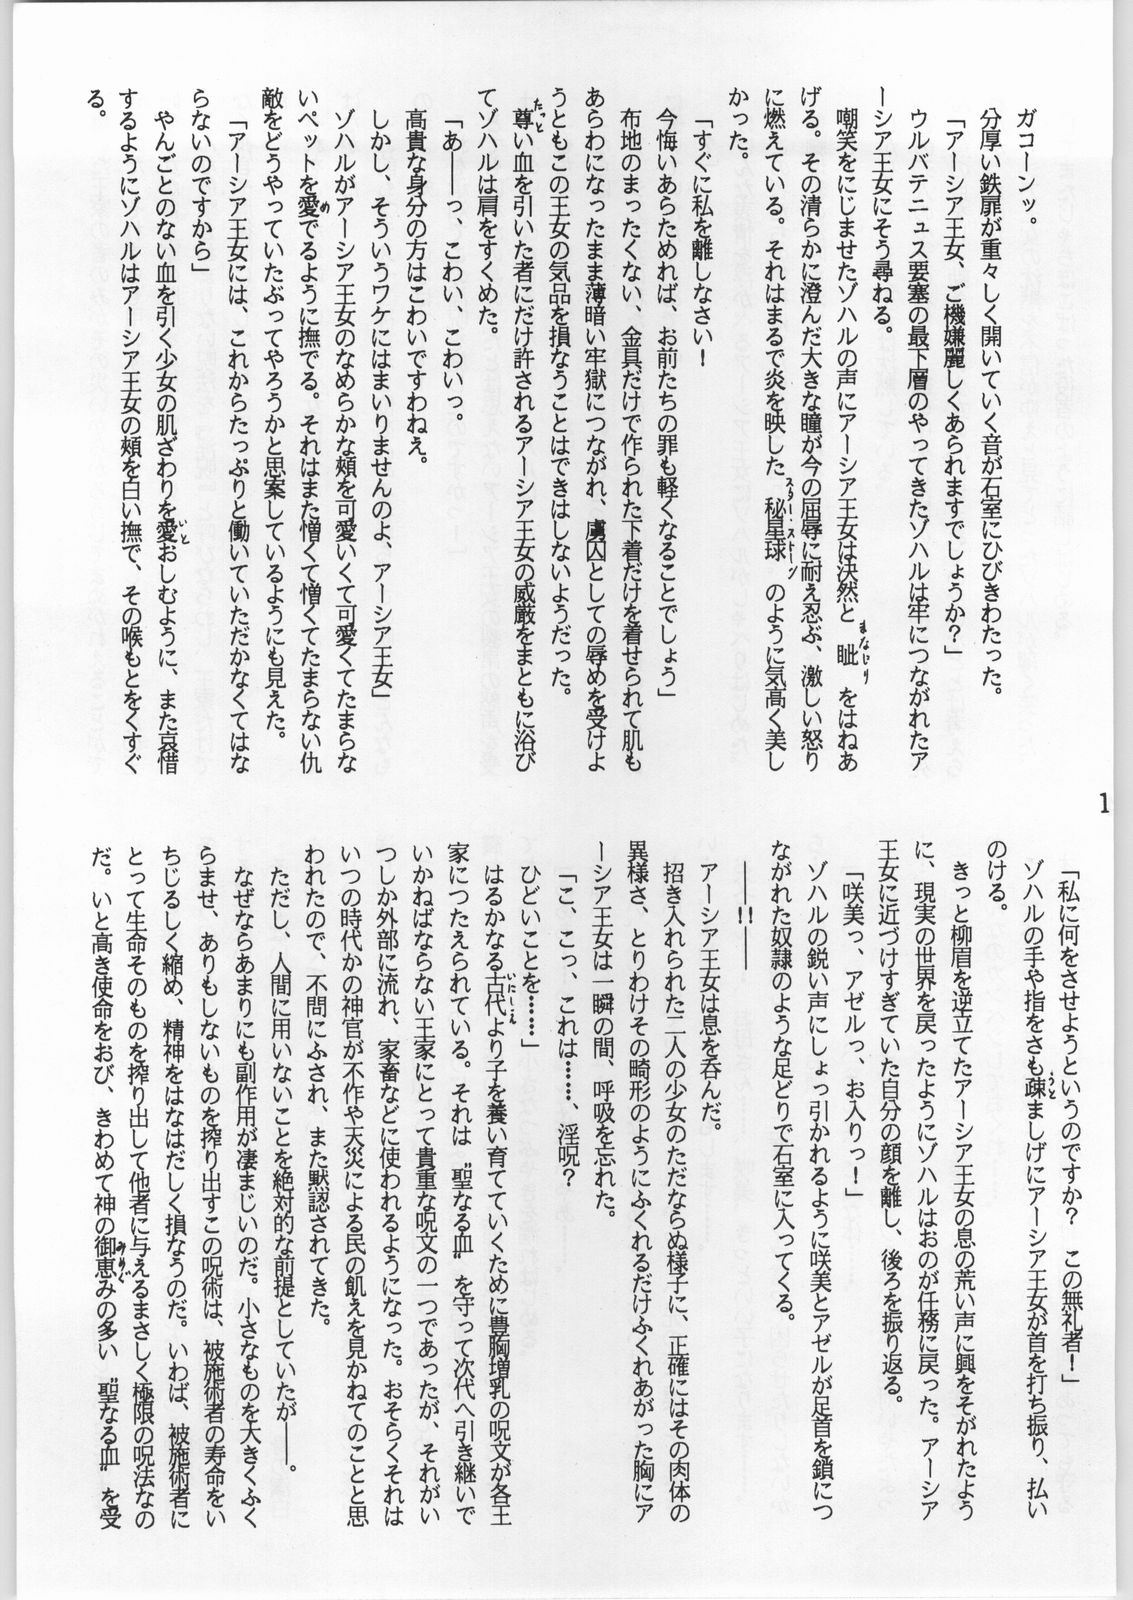 ガコーンッ。
分厚い鉄扉が重々しく開いていく音が石室にひびきわたった。
「アーシア王女、ご機嫌麗しくあられますでしょうか？」
ウルバテニュス要塞の最下層のやってきたゾハルは牢につながれたア
ーシア王女にそう尋ねる。
嘲笑をにじませたゾハルの声にアーシア王女は決然と眦をはねあ
げる。その清らかに澄んだ大きな瞳が今の屈辱に耐え忍ぶ、激しい怒り
に燃えている。それはまるで炎を映した秘星球のように気高く美し
かった。
「すぐに私を離しなさい！
今悔いあらためれば、お前たちの罪も軽くなることでしょう」
布地のまったくない、金具だけで作られた下着だけを着せられて肌も
あらわになったまま薄暗い牢獄につながれ、虜囚としての辱めを受けよ
うともこの王女の気品を損なうことはできはしないようだった。
尊い血を引いた者にだけ許されるアーシア王女の威厳をまともに浴び
てゾハルは肩をすくめた。
「あ――っ、こわい、こわいっ。
高貴な身分の方はこわいですわねぇ。
しかし、そういうワケにはまいりませんのよ、アーシア王女」
ゾハルがアーシア王女のなめらかな頰を可愛いくて可愛くてたまらな
いペットを愛でるように撫でる。それはまた憎くて憎くてたまらない仇
敵をどうやっていたぶってやろうかと思案しているようにも見えた。
「アーシア王女には、これからたっぷりと働いていただかなくてはな
らないのですから」
やんごとのない血を引く少女の肌ざわりを愛おしむように、また哀惜
するようにゾハルはアーシア王女の頰を白い撫で、その喉もとをくすぐ
る。
「私に何をさせようというのですか？　この無礼者！」
ゾハルの手や指をさも疎ましげにアーシア王女が首を打ち振り、払い
のける。
きっと柳眉を逆立てたアーシア王女の息の荒い声に興をそがれたよう
に、現実の世界を戻ったようにゾハルはおのが任務に戻った。アーシア
王女に近づけすぎていた自分の顔を離し、後ろを振り返る。
「咲美っ、アゼルっ、お入りっ！」
ゾハルの鋭い声にしょっ引かれるように咲美とアゼルが足首を鎖につ
ながれた奴隷のような足どりで石室に入ってくる。
――！！――
アーシア王女は息を呑んだ。
招き入れられた二人の少女のただならぬ様子に、正確にはその肉体の
異様さ、とりわけその畸形のようにふくれるだけふくれあがった胸にア
ーシア王女は一瞬の間、呼吸を忘れた。
「こ、こっ、これは……、淫呪？
ひどいことを……」
はるかなる古代より子を養い育てていくために豊胸増乳の呪文が各王
家につたえられている。それは〝聖なる血〟を守って次代へ引き継いで
いかねばならない王家にとって貴重な呪文の一つであったが、それがい
つしか外部に流れ、家畜などに使われるようになった。おそらくそれは
いつの時代かの神官が不作や天災による民の飢えを見かねてのことと思
われたので、不問にふされ、また黙認されてきた。
ただし、人間に用いないことを絶対的な前提としていたが――。
なぜならあまりにも副作用が凄まじいのだ。小さなものを大きくふく
らませ、ありもしないものを搾り出すこの呪術は、被施術者の寿命をい
ちじるしく縮め、精神をはなはだしく損なうのだ。いわば、被施術者に
とって生命そのものを搾り出して他者に与えるまさしく極限の呪法なの
だ。いと高き使命をおび、きわめて神の御恵みの多い〝聖なる血〟を受
1